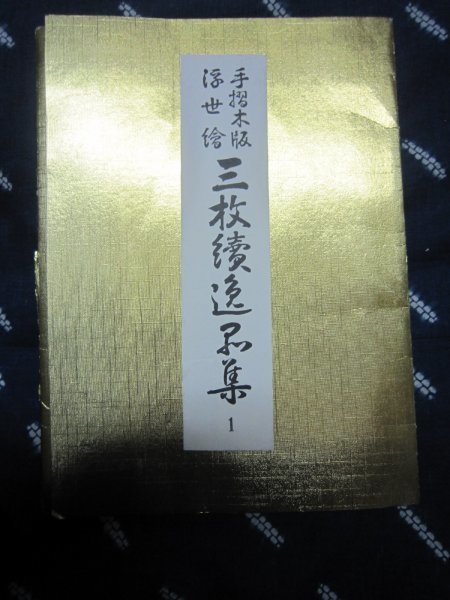 手摺木版
浮世繪
三枚續逸品集
1